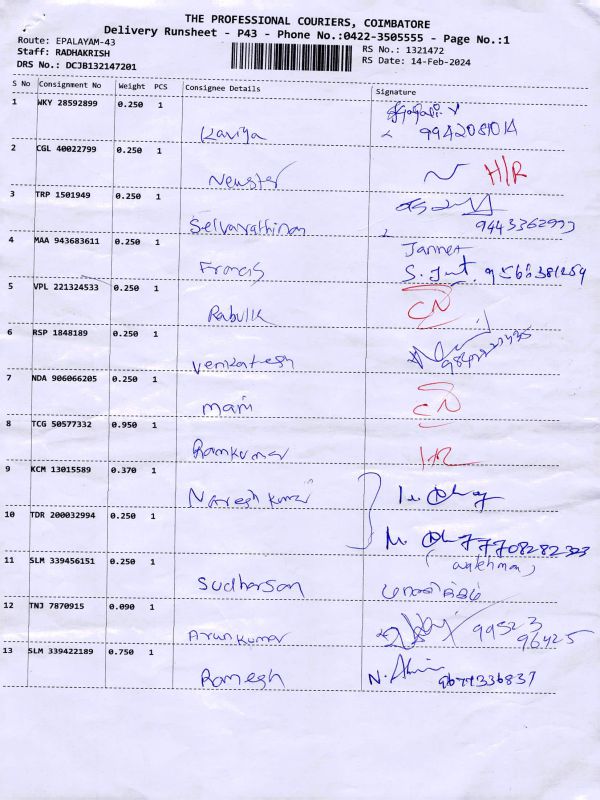 THE PROFESSIONAL COURIERS, COIMBATORE
Delivery Runsheet - P43 - Phone No.:0422-3505555 - Page No.:1
Route: EPALAYAM-43
RS No.: 1321472
Staff: RADHAKRISH
RS Date: 14-Feb-2024
DRS No.: DCJB132147201
S No Consignment No Weight PCS Consignee Details Signature
1 WKY 28592899 0.250 1
Kaviya 9942081014
2 CGL 40022799 0.250 1
Newster H/R
3 TRP 1501949 0.250 1
Selvarathinam 9443362993
4 MAA 943683611 0.250 1 Jannet
Francis
5 VPL 221324533 0.250 1 CN
Rabulk
6 RSP 1848189 0.250 1
Venkatesh
7 NDA 906066205 0.250 1
mani CN
8 TCG 50577332 0.950 1
Ramkumar HR
9 KCM 13015589 0.370 1
Naresh kumar
10 TDR 200032994 0.250 1
7708282323
(watchman)
11 SLM 339456151 0.250 1
Sudharsan
12 TNJ 7870915 0.090 1
Arunkumar 99523
96425
13 SLM 339422189 0.750 1
Ramesh 9677336837